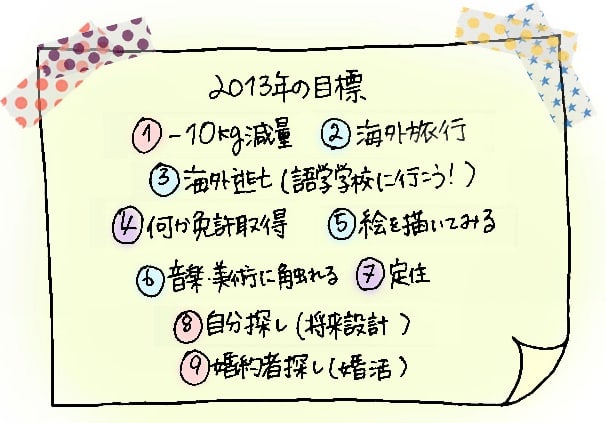 2013年の目標
① -10kg減量 ② 海外旅行
③ 海外逃亡(語学学校に行こう!)
④ 何か免許取得 ⑤ 絵を描いてみる
⑥ 音楽・美術に触れる ⑦ 定住
⑧ 自分探し(将来設計)
⑨ 婚約者探し(婚活)